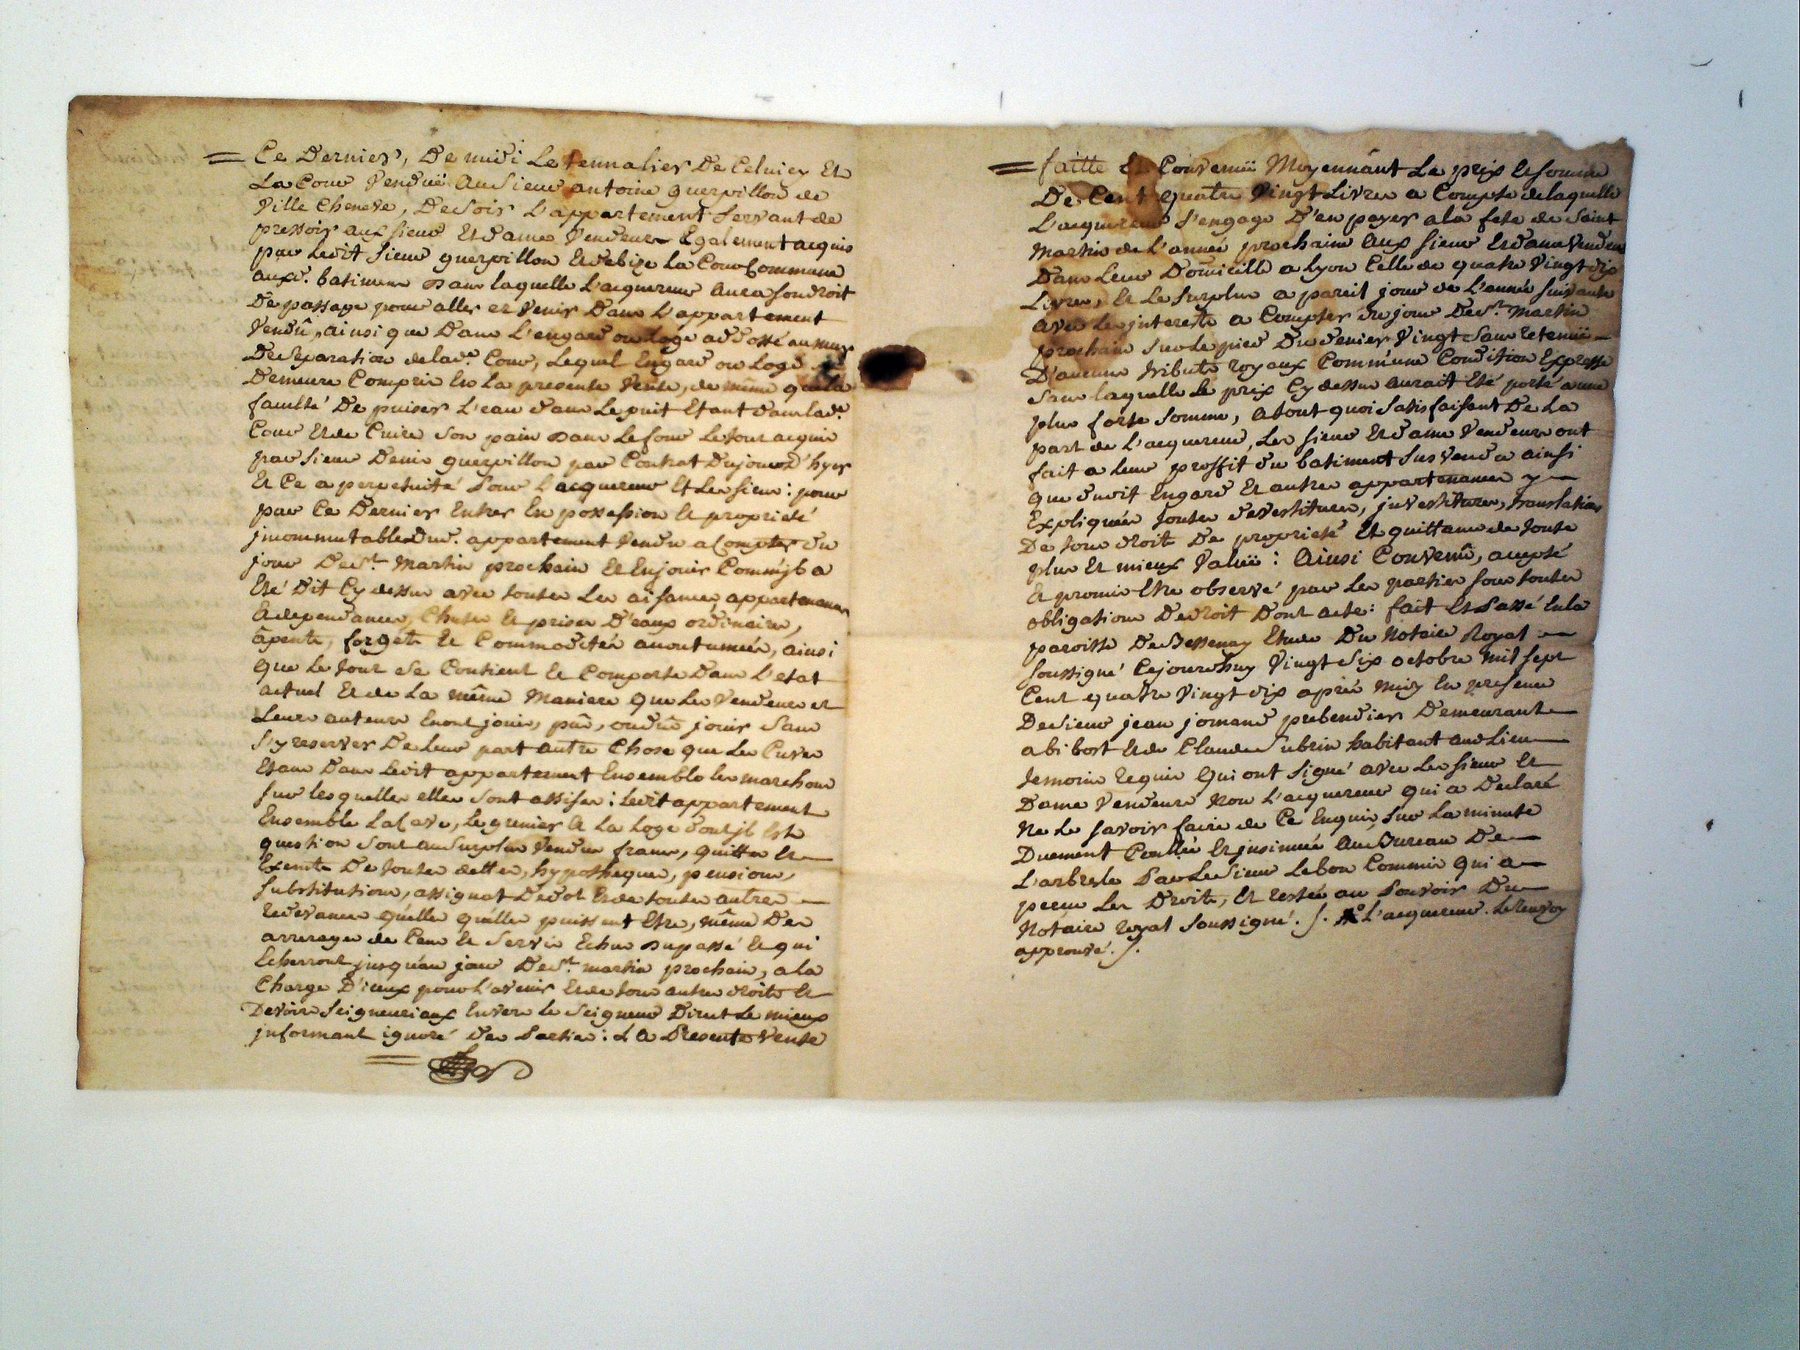 Ce Dernier, De midi Le tennalier De Celuicy Et
La Cour Vendue Au Sieur antoine querpillon de
Ville Cheneve, De soir L'appartement Servant de
pressoir aux Sieur Et dame Vendeurs Egalement acquis
par Ledit Sieur querpillon Et de bize La Cour Commune
auxd. batimens dans laquelle L'acquereur aura son droit
De passage pour aller et Venir Dans L'appartement
Vendû, ainsi que Dans L'engard ou Loge adossé au mur
De Separation de lad.e Cour, Lequel Engard ou Loge
Demeure Compris En La presente Vente, de même que la
faculté De puiser L'eau dans Le puit Etant dans lad.e
Cour Et de Cuire Son pain dans Le four Le tout acquis
par Sieur Denis querpillon par Contrat Du jour D'hyer
Et Ce a perpetuité Pour L'acquereur Et Les Siens: pour
par Ce Dernier Entrer En possession Et propriété
jncommutable Dud. appartement Vendu a Compter du
jour De St. Martin prochain Et En jouir Comm'jl a
Eté Dit Cy dessus avec toutes Les aisances, appartenances
& dependances, Chutes Et prises D'eaux ordinaires,
âpents, forgets Et Commodités accoutumées, ainsi
que Le tout Se Contient Et Comporte Dans L'etat
actuel Et de La même Maniere que Les Vendeurs et
Leurs auteurs En ont joui, pû, ou dû jouir Sans
S'y reserver De Leur part autre Chose que Les Cuves
Etant Dans Ledit appartement Ensemble les marchons
Sur lesquelles elles Sont assises: Ledit appartement
Ensemble La Cave, Le grenier & La Loge dont jl Est
question Sont au Surplus Vendus francs, quittes Et
Exempts De toutes dettes, hypotheques, pensions,
Substitutions, assignat De dot Et de toutes autres
redevances quelles quelles puissent Etre, même Des
arrerages de Cens Et Servis Echus du passé Et qui
Echerront jusqu'au jour De St. martin prochain, a la
Charge D'iceux pour L'avenir Et de tous autres droits Et
Devoirs Seigneuriaux Envers Le Seigneur Direct Le mieux
jnformant ignoré Des Parties: La Presente Vente
faitte Et Convenüe Moyennant Le prix Et Somme
De Cent quatre Vingt Livres a Compte de laquelle
L'acquereur S'engage D'en payer a la fete de Saint
Martin de L'année prochaine Aux Sieur Et dame Vendeurs
Dans Leur Domicille a Lyon Celle de quatre Vingt dix
Livres, Et Le Surplus a pareil jour de L'année Suivante
avec Les jnterests a Compter du jour De St. Martin
prochain Sur Le pied Du denier Vingt Sans retenüe
D'aucuns tributs royaux Comm'une Condition Expresse
Sans laquelle Le prix Cy dessus aurait Eté porté a une
plus forte Somme, a tout quoi Satisfaisant De La
part de L'acquereur, Les Sieur Et dame Vendeurs ont
fait a Leur proffit du batiment Sus vendu ainsi
que dudit Engard Et autres appartenances y
Expliquées toutes devestitures, jnvestitures, translations
De tous droits De propriété Et quittance de toute
plus Et mieux Value: Ainsi Convenû, accepté
& promis Etre observé par Les parties Sous toutes
obligations De droit Dont acte: fait Et Passé En la
paroisse De Bessenay Etude Du Notaire Royal
Soussigné Cejourdhuy Vingt Six octobre mil Sept
Cent quatre Vingt dix après midy En presence
De Sieur jean jomand prebendier Demeurant
a bibost Et de Claude Subrin habitant aud. Lieu
temoins requis Qui ont Signé avec Les Sieur Et
Dame Vendeurs Non L'acquereur qui a Declaré
Ne Le Savoir faire de Ce Enquis, Sur La minute
Duement Conllée Et jnsinuée Au Bureau De
L'arbresle Par Le Sieur Lebon Commis Qui a
perçu Les Droits, Et restée au Pouvoir Du
Notaire royal Soussigné. L'acquereur. Le renvoy
approuvé.